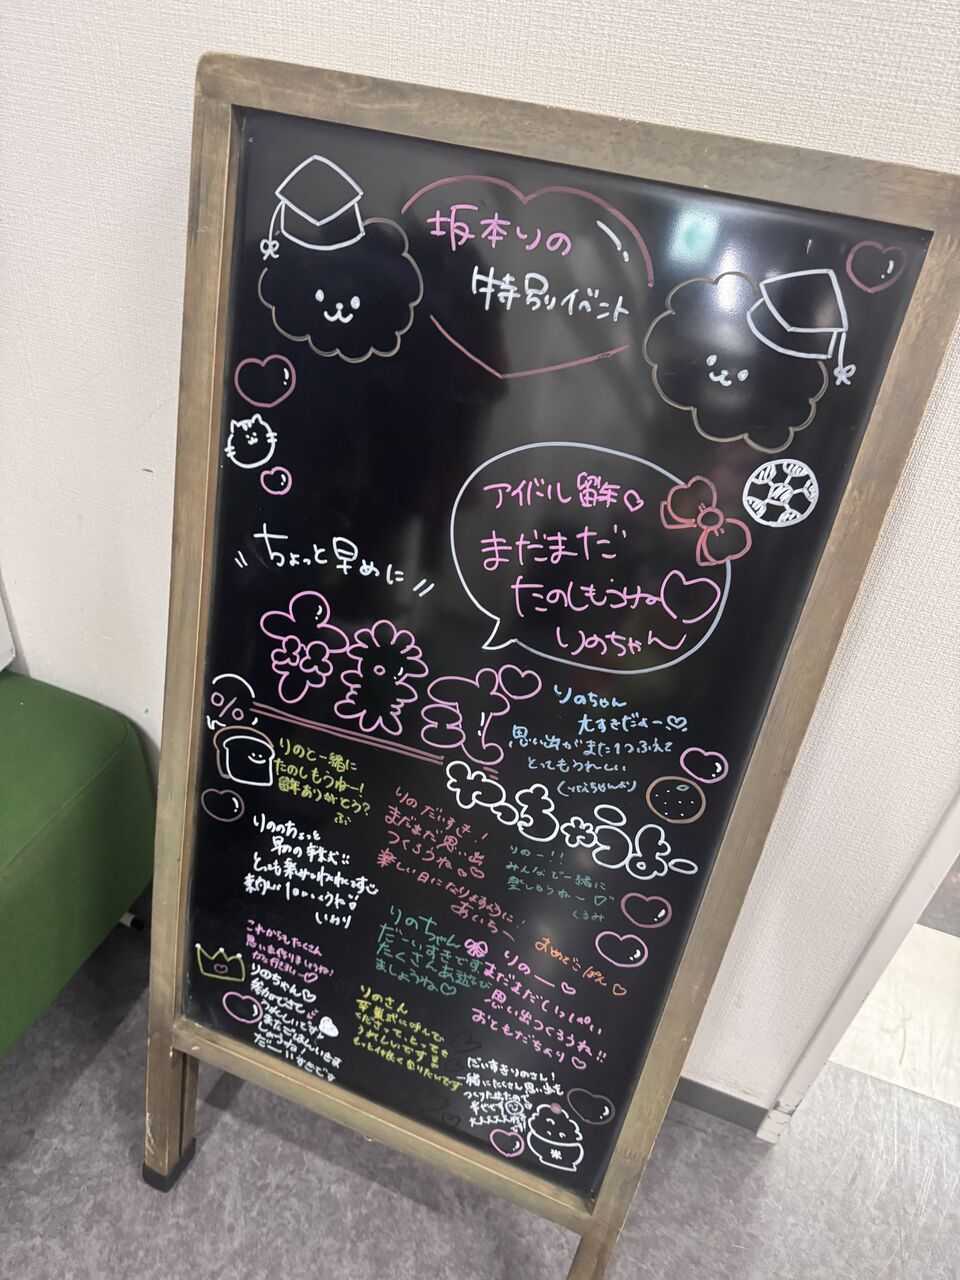 坂本りの
特別イベント
アイドル留年♡
まだまだ
たのしもうね♡
りのちゃん
〃ちょっと早めに〃
卒業式
やっちゃうよー
りのちゃん
大すきだよー♡
思い出がまた1つふえて
とってもうれしい
りのと一緒に
たのしもうねー!
留年ありがとう?
りの だいすき!
まだまだ思い出
つくろうね♡♡
楽しい日になりますように!
りのー!!
みんなで一緒に
楽しもうねー♡
くるみ
りののちょっと
早めの卒業式!!
いのり
おめでこぽん♡
これからもたくさん
思い出作りましょうね!
りのちゃん♡
参加できて
うれしいです!
だーいすきです
りのちゃん
だーいすきです
たくさんお遊び
ましょうね♡
りのー♡
まだまだいっぱい
思い出つくろうね!!
おともだちより♡
りのさん
卒業式に呼んで
くださって、とっても
うれしいです
もっと仲良くなりたいです
だいすきりのさん!
一緒にたくさん思い出を
米